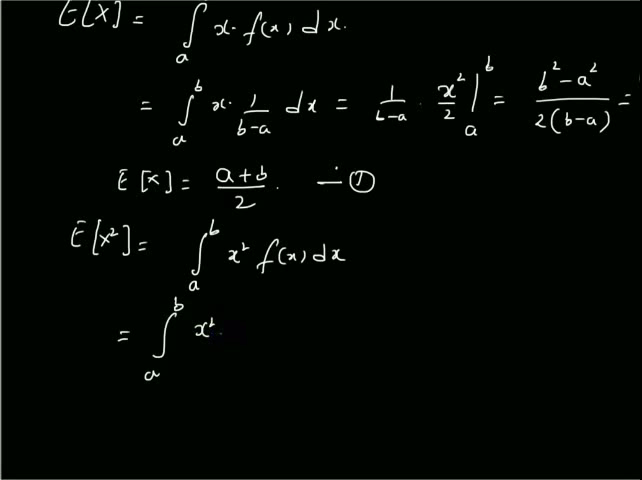 E[X] = ∫ₐ x. f(x) dx.
= ∫ₐᵇ x. 1/(b-a) dx = 1/(b-a) . x²/2 |ₐᵇ = (b² - a²)/(2(b-a)) =
E[X] = (a+b)/2. — ①
E[X²] = ∫ₐᵇ x² f(x) dx
= ∫ₐᵇ x².